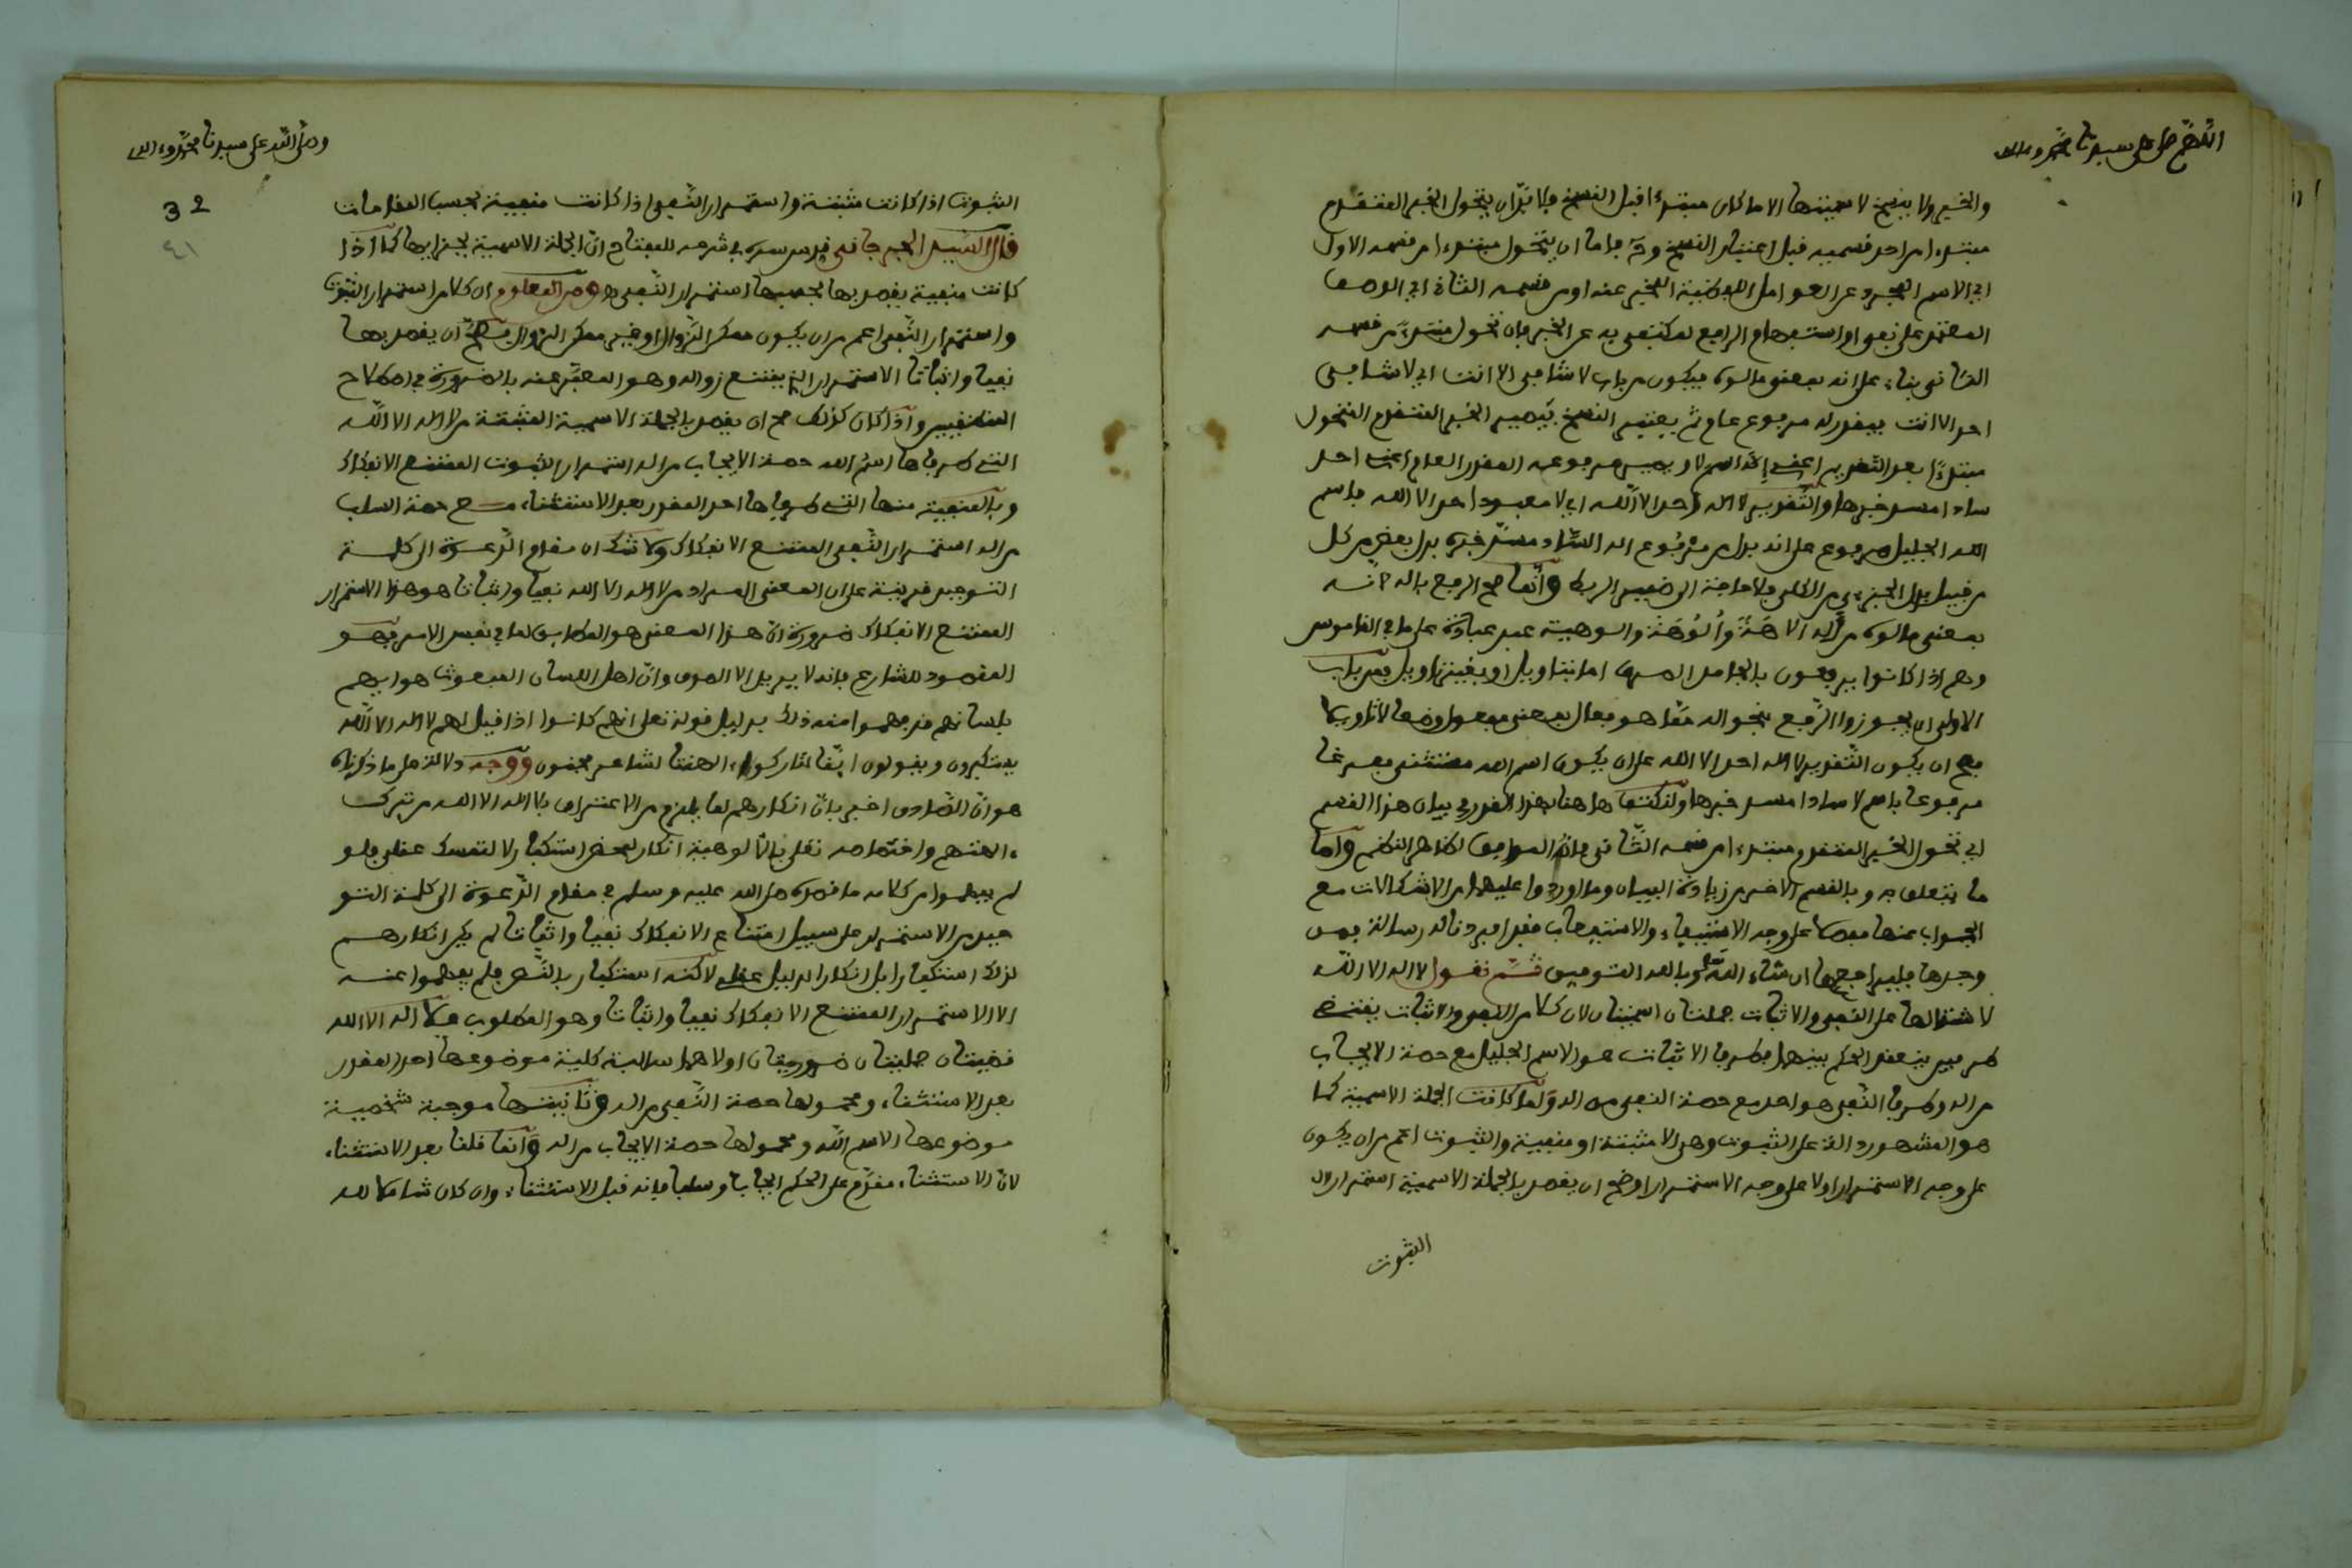 اللهم صل على سيدنا محمد وءاله
والخبر ولا ينسخ لاسميتها الا ما كان مبتدءا قبل النسخ فلا بد ان يتحول الخبر المتقدم
مبتدءا من احد قسميه قبل اعتبار النسخ وح فاما ان يتحول مبتدءا من قسمه الاول
اي الاسم المجرد عن العوامل اللفظية المخبر عنه او من قسمه الثاني اي الوصف
المعتمد على نفي او استفهام الرافع لمكتفى به عن الخبر فان تحول مبتدءا من قسمه
الثاني بناء على انه بمعنى مالوه فيكون من باب لا شافي الا انت اي لا شافي
احد الا انت فيقدر له مرفوع عام ثم يعتبر النسخ فيصير الخبر المتقدم المتحول
مبتدءا بعد التقدير اعني اله اسم لا ويصير مرفوعه المقدر العام اعني احد
سادا مسد خبرها والتقدير لا اله احد الا الله اي لا معبود احد الا الله فاسم
الله الجليل مرفوع على انه بدل من مرفوع اله الساد مسد خبره بدل بعض من كل
من قبيل بدل الجزءي من الكلي فلا حاجة الى ضمير الربط وانما صح الرفع باله لانه
بمعنى مالوه من اله الاهة والوهة والوهية عبد عبادة على ما في القاموس
وهم اذا كانوا يرفعون بالجامد الصرف اما بتاويل او بغير تاويل فمن باب
الاولى ان يجوزوا الرفع بنحو اله مما هو فعال بمعنى مفعول وضعا لا تاويلا
فصح ان يكون التقدير لا اله احد الا الله على ان يكون اسم الله مستثنى مفرغا
مرفوعا باسم لا سادا مسد خبرها ولنكتف هاهنا بهذا القدر في بيان هذا القسم
اي تحول الخبر المتقدم مبتدءا من قسمه الثاني فانه الموافق لظاهر النظم واما
ما يتعلق به وبالقسم الاخر من زيادة البيان وما اوردوا عليهما من الاشكالات مع
الجواب عنها مفصلا على وجه الاستيفاء والاستيعاب فقد افردنا له رسالة فمن
وجدها فليراجعها ان شاء الله وبالله التوفيق ثم نقول لا اله الا الله
لاشتمالها على النفي والاثبات جملتان اسميتان لان كلا من النفي والاثبات يقتضي
طرفين ينعقد الحكم بينهما فطرفا الاثبات هو الاسم الجليل مع حصة الايجاب
من اله وطرفا النفي هو احد مع حصة النفي من اله ولما كانت الجملة الاسمية كما
هو المشهور دالة على الثبوت وهي الا مثبتة او منفية والثبوت اعم من ان يكون
على وجه الاستمرار او لا على وجه الاستمرار اوضح ان يقصد بالجملة الاسمية استمرار
الثبوت
وصلى الله على سيدنا محمد وءاله
32
٤١
الثبوت اذا كانت مثبتة واستمرار النفي اذا كانت منفية بحسب المقامات
قال السيد الجرجاني قدس سره في شرحه للمفتاح ان الجملة الاسمية يجز ايها كما اذا
كانت منفية يقصد بها بحسبها استمرار النفي ه ومن المعلوم ان كلا من استمرار الثبوت
واستمرار النفي اعم من ان يكون ممكن الزوال او غير ممكن الزوال فصح ان يقصد بها
نفيا واثباتا الاستمرار الذي يمتنع زواله وهو المعبر عنه بالضرورة في اصطلاح
المنطقيين واذا كان كذلك صح ان يقصد بالجملة الاسمية المثبتة من لا اله الا الله
التي طرفاها اسم الله حصة الايجاب من اله استمرار الثبوت الممتنع الانفكاك
وبالمنفية منها التي طرفاها احد المقدر بعد الاستثناء مع حصة السلب
من اله استمرار النفي الممتنع الانفكاك ولا شك ان مقام الدعوة الى كلمة
التوحيد قرينة على ان المعنى المراد من لا اله الا الله نفيا واثباتا هو هذا الاستمرار
الممتنع الانفكاك ضرورة ان هذا المعنى هو المطابق لما في نفس الامر فهو
المقصود للشارع فانه لا يريد الا الصدق وان اهل اللسان المبعوث هو اليهم
بلسانهم قد فهموا منه ذلك بدليل قوله تعلى انهم كانوا اذا قيل لهم لا اله الا الله
يستكبرون ويقولون ائنا لتاركوا ءالهتنا لشاعر مجنون ووجه دلالته على ما ذكرناه
هو ان الصادق اخبر بان انكارهم لما يلزم من الاعتراف بلا اله الا الله من ترك
ءالهتهم واختصاصه تعلى بالالوهية انكار لمحض استكبار لا لتمسك عقلي فلو
لم يفهموا من كلامه ما قصده صلى الله عليه وسلم في مقام الدعوة الى كلمة التو
حيد من الاستمرار على سبيل امتناع الانفكاك نفيا واثباتا لم يكن انكارهم
لذلك استكبارا بل انكارا لدليل عقلي لاكنه استكبار بالنص فلم يفهموا عنه
الا الاستمرار الممتنع الانفكاك نفيا واثباتا وهو المطلوب فلا اله الا الله
قضيتان حمليتان ضروريتان اولاهما سالبة كلية موضوعها احد المقدر
بعد الاستثناء ومحمولها حصة النفي من اله وثانيتها موجبة شخصية
موضوعها الاسم الله ومحمولها حصة الايجاب من اله وانما قلنا بعد الاستثناء
لان الاستثناء مقدم على الحكم ايجابا وسلبا فانه قبل الاستثناء وان كان شاملا لله